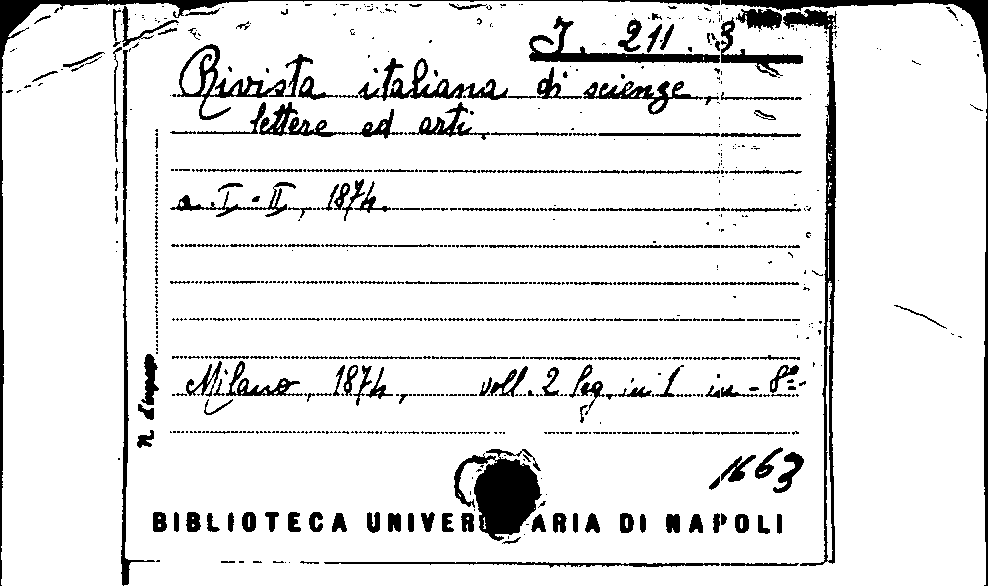 J. 211. 3.
Rivista italiana di scienze,
lettere ed arti.
a. I - II, 1874.
Milano, 1874, voll. 2 leg. in 1 in - 8º-
N. d'ingresso
1663
BIBLIOTECA UNIVER ARIA DI NAPOLI